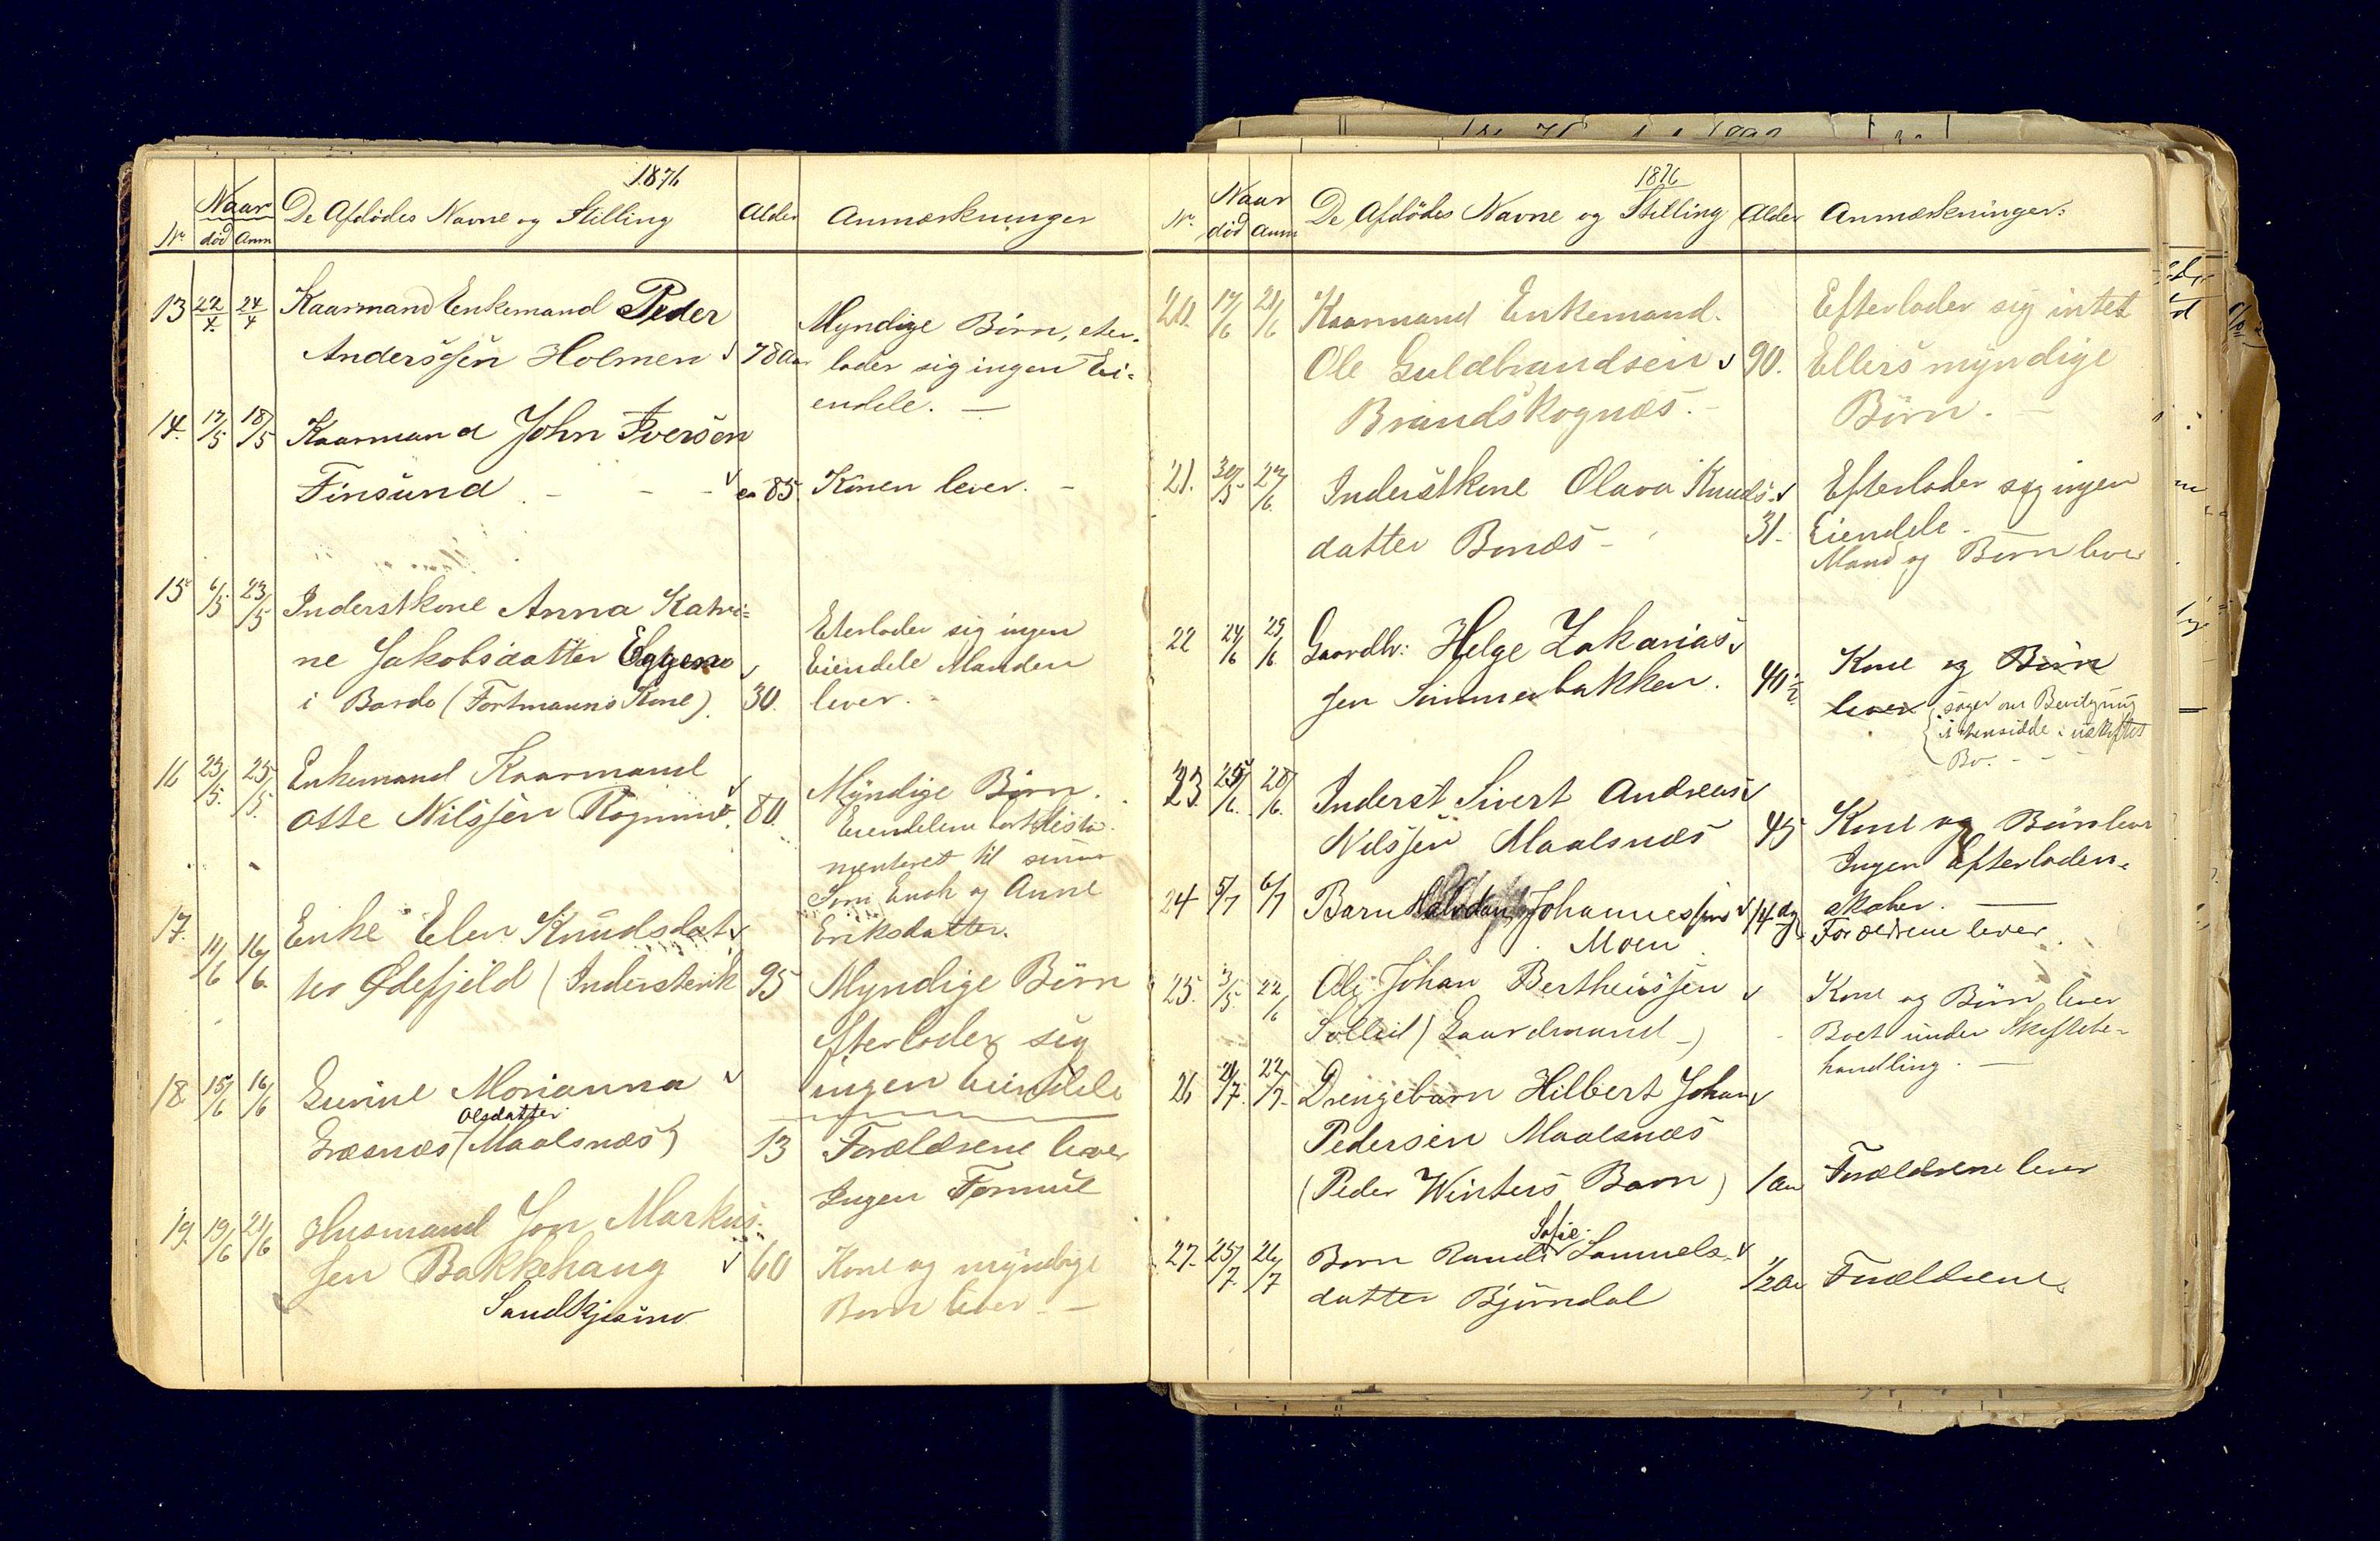 1876
Nr. Naar død Anm De Afdødes Navne og Stilling Alder Anmærkninger
13 22/4 24/4 Kaarmand Enkemand Peder
Anderssen Holmen 78 Aar
Myndige Börn, eter-
lader sig ingen Ei-
endele. —
14. 17/5 18/5 Kaarmand John Iversen
Finsund - - - ca 85 Konen lever. -
15 6/5 23/5 Inderstkone Anna Katri-
ne Jakobsdatter Eggen
i Bardo (Fortmanns Kone). 30.
Eterlader sig ingen
Eiendele Manden
lever. -
16 23/5. 25/5. Enkemand Kaarmand
Otte Nilssen 80.
Myndige Börn.
Eiendelene
menteret til
Söm Enok og Anne
Eriksdatter.
17. 14/6 16/6. Enke Elen Knudsdat-
ter Ødefjeld (Inderstenk 95
Myndige Börn
efterlader sig
ingen Eiendele
18. 15/6 16/6 Gurine Marianna
Olsdatter
Græsnæs (Maalsnæs) 13
Forældrene lever
Ingen Formue
19. 19/6 21/6 Husmand Jon Markus-
sen Bakkehaug 60
Sandskjismo
Kone og myndige
Born lever - —
1876
Nr. Naar død Anm De Afdødes Navne og Stilling Alder Anmærkninger:
20. 17/6 21/6 Kaarmand Enkemand.
Ole Guldbrandsen 90.
Brandskognæs. -
Efterlader sig intet
Ellers myndige
Börn. —
21. 30/5 27/6. Inderstkone Olava Knuds-
datter Bonæs - 31-
Efterlader sig ingen
Eiendele -
Mand og Börn lever
22 24/6 29/6. Gaardbr: Helge Zakarias-
sen Simmerbakken. 40 1/2
Kone og Börn
lever söger om Bevilgning
i uskiftet
Bo. - -
23. 25/6. 28/6. Inderst Sivert Andreas
Nilssen Maalsnæs 45
Kone og Börn lever
Ingen Efterladen-
skaber. —
24 5/7 6/7 Barn Halvdan Johannessens 14 dg.
Moen
Forældrene lever.
25. 3/5. 22/6 Ole Johan Bertheussen
Solleid (Gaardmand -)
Kone og Börn lever
Boet under Skiftebe-
handling. —
26 21/7. 22/7. Drengebarn Hilbert Johan
Pedersen Maalsnæs
(Peder Winters Barn) 1 Aar
Forældrene lever
27. 25/7. 26/7 Barn Randi Sofie Samuels-
datter Björndal 1/2 Aar
Forældrene